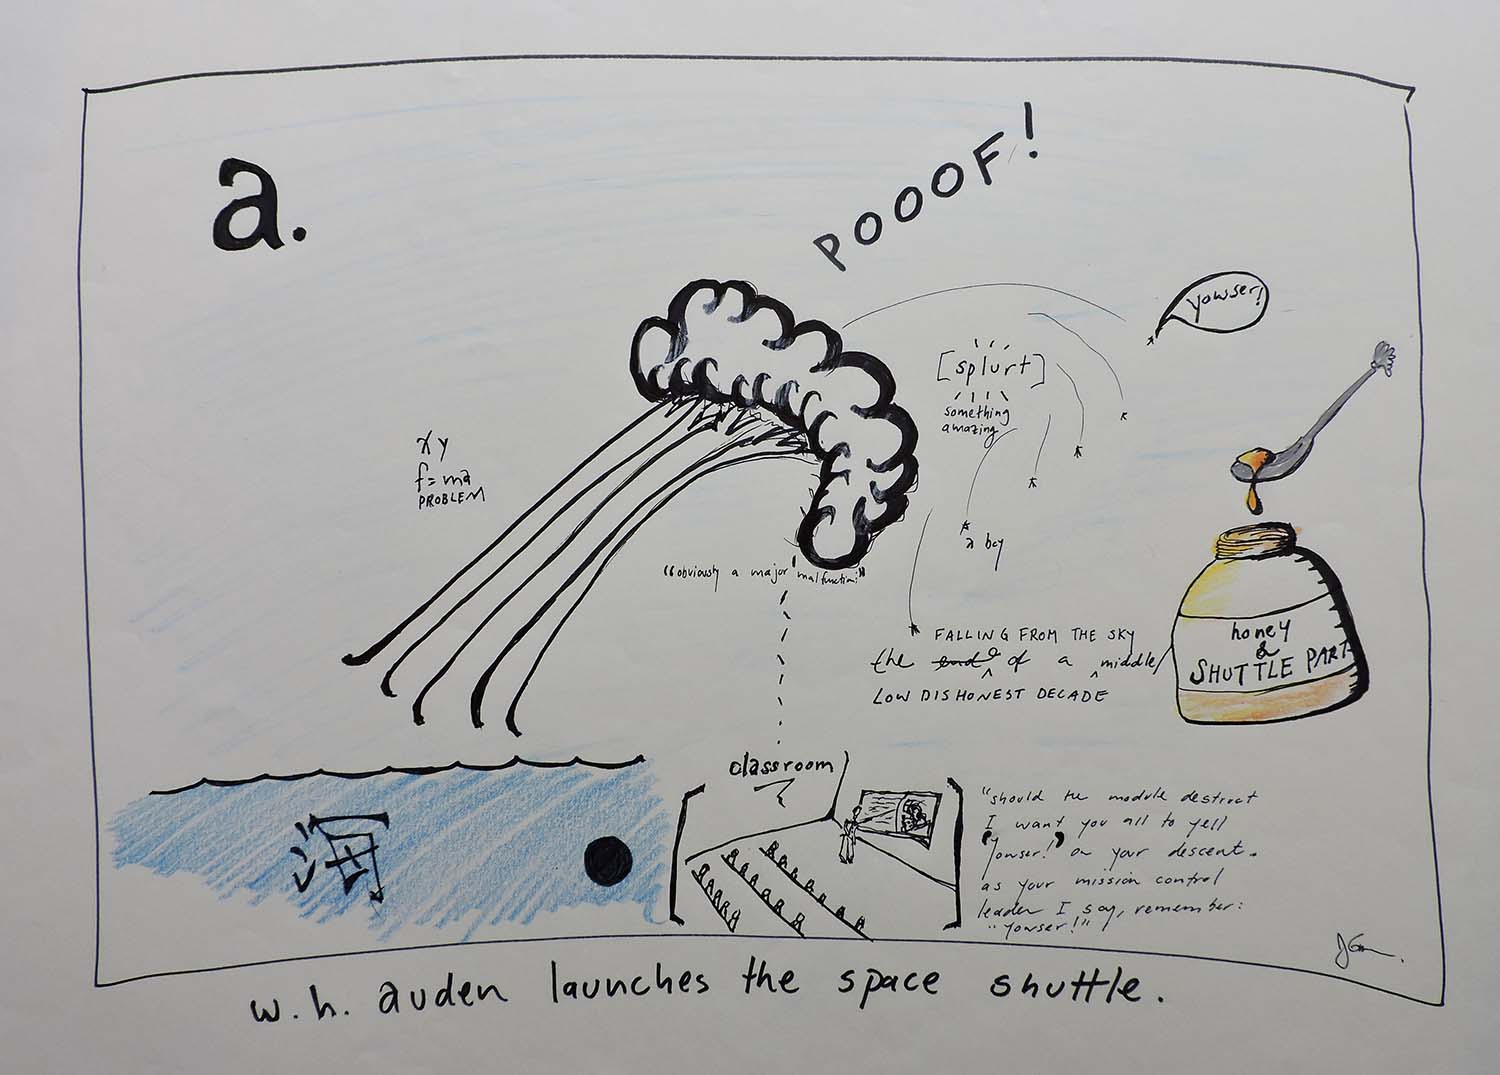 a.
POOOF!
yowser!
[splurt]
something
amazing
xy
f=ma
PROBLEM
a boy
"obviously a major malfunction"
FALLING FROM THE SKY
the end of a middle
LOW DISHONEST DECADE
honey
&
SHUTTLE PART
海
classroom
"should the module destruct
I want you all to yell
"yowser!" on your descent.
as your mission control
leader I say, remember:
"yowser!"
w.h. auden launches the space shuttle.